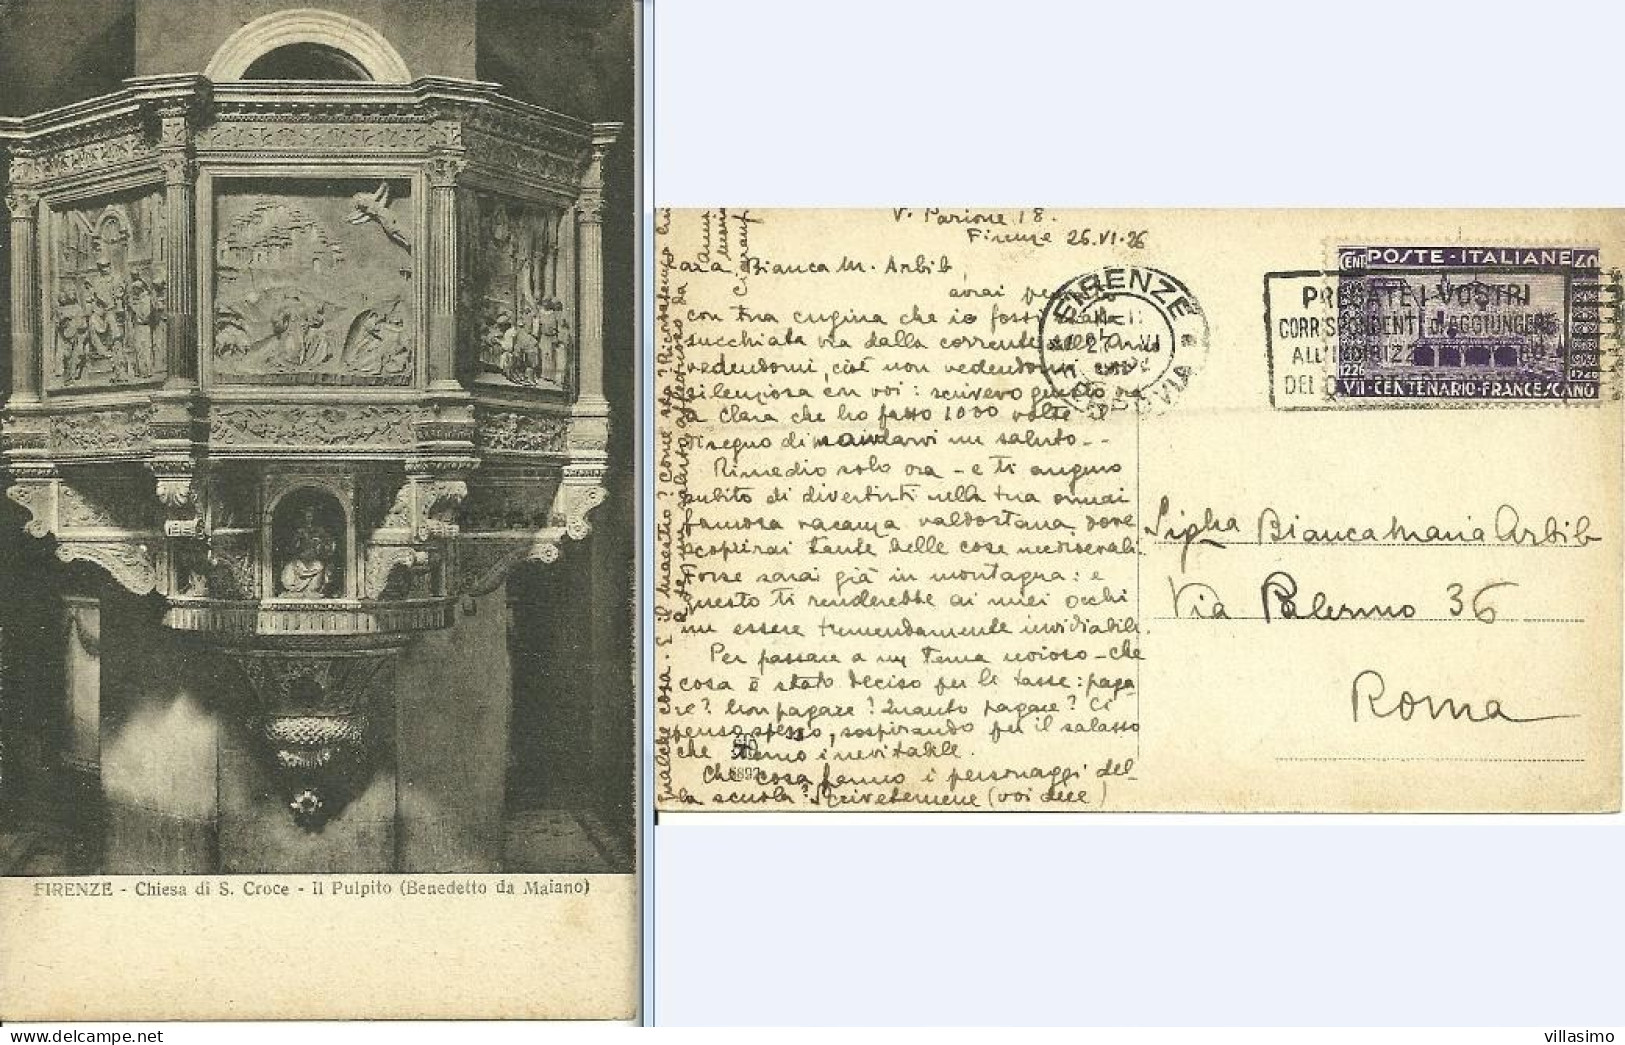 FIRENZE - Chiesa di S. Croce - Il Pulpito (Benedetto da Maiano)
V. Parione 18.
Firenze 26.VI.26
Cara Bianca M. Arbib,
avrai
con tua cugina che io fossi stata
succhiata via dalla corrente dell'Arno
vedendomi, cioè non vedendomi
silenziosa con voi: scrivevo
a Clara che ho fatto 1000 volte il
disegno di mandarvi un saluto--
Rimedio solo ora - e ti auguro
subito di divertirti nella tua ormai
famosa vacanza valdostana dove
scoprirai tante belle cose medioevali.
Forse sarai già in montagna: e
questo ti renderebbe ai miei occhi
un essere tremendamente invidiabile.
Per passare a un tema noioso - che
cosa è stato deciso per le tasse: paga
re? Non pagare? Quanto pagare? Ci
penso spesso, sospirando per il salasso
che temo inevitabile.
Che cosa fanno i personaggi del-
la scuola? Scrivetemene (voi due)
qualche cosa. E il maestro? Come sta? Ricordatemi
a te un saluto affettuoso da
FIRENZE
27 VI
FERROVIA
PREGATE I VOSTRI
CORRISPONDENTI di AGGIUNGERE
ALL'INDIRIZZO
DEL
CENT POSTE·ITALIANE 40
1226 1926
VII·CENTENARIO·FRANCESCANO
Sig.na Bianca Maria Arbib
Via Palermo 36
Roma
villasimo